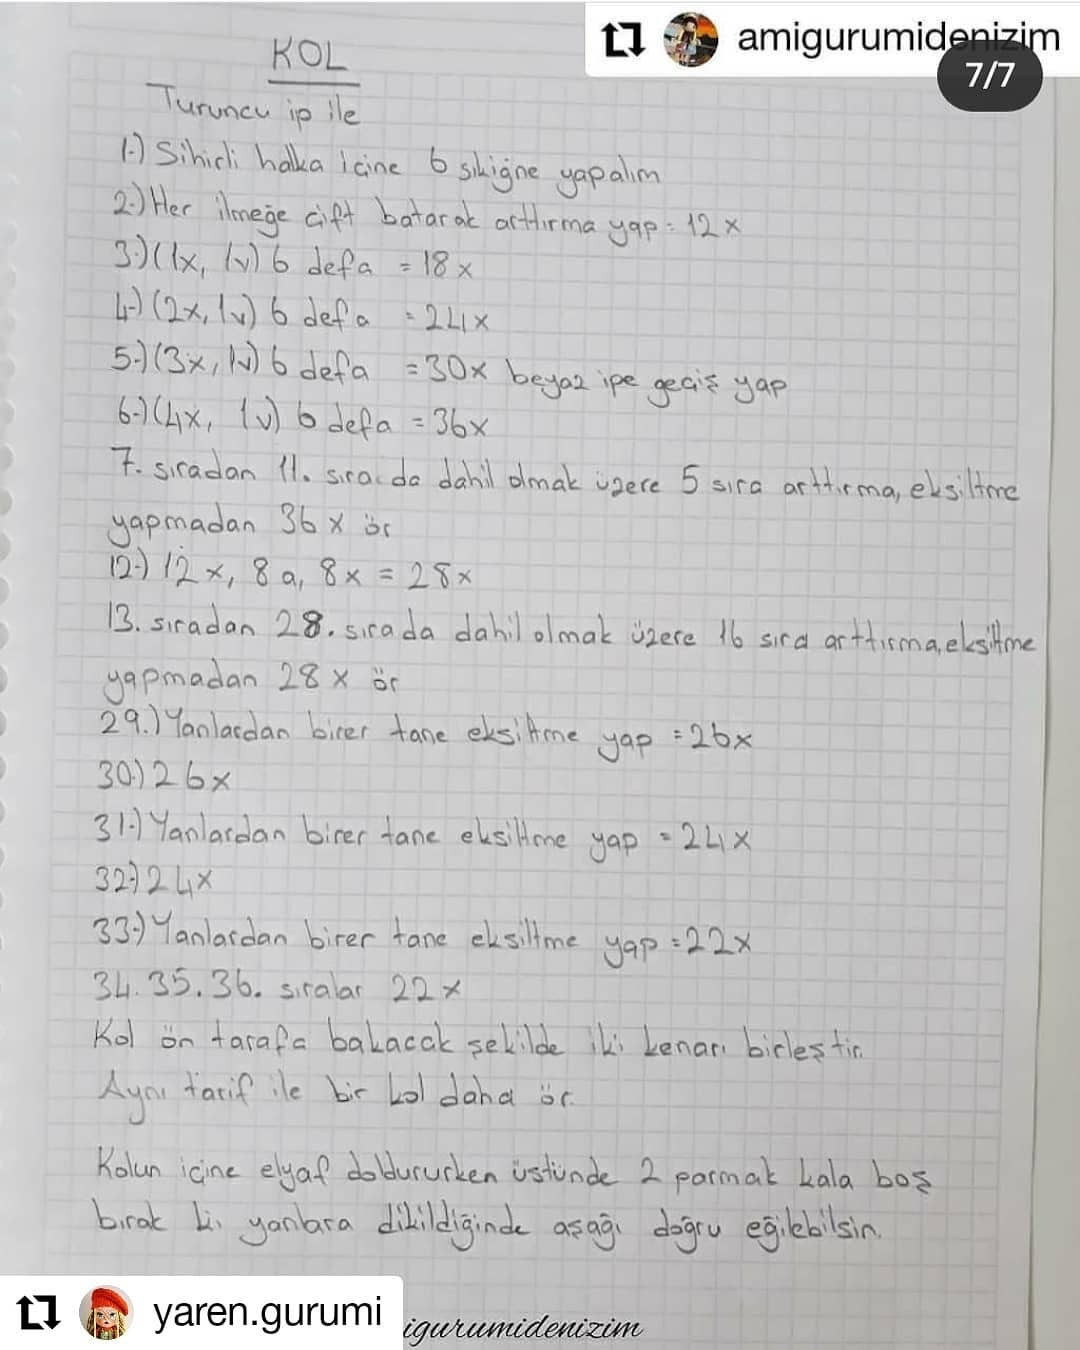 amigurumidenizim
7/7
KOL
Turuncu ip ile
1-) Sihirli halka içine 6 sıkiğne yapalım
2-) Her ilmeğe çift batarak arttırma yap = 12 x
3-) (1x, 1v) 6 defa = 18 x
4-) (2x, 1v) 6 defa = 24x
5-) (3x, 1v) 6 defa = 30x beyaz ipe geçiş yap
6-) (4x, 1v) 6 defa = 36x
7. sıradan 11. sıra da dahil olmak üzere 5 sıra arttırma, eksiltme
yapmadan 36 x ör
12-) 12 x, 8 a, 8 x = 28x
13. sıradan 28. sırada dahil olmak üzere 16 sıra arttırma, eksiltme
yapmadan 28 x ör
29.) Yanlardan birer tane eksiltme yap = 26x
30-) 26x
31-) Yanlardan birer tane eksiltme yap = 24x
32-) 24x
33-) Yanlardan birer tane eksiltme yap = 22x
34. 35. 36. sıralar 22 x
Kol ön tarafa bakacak şekilde iki kenarı birleştir.
Aynı tarif ile bir kol daha ör.
Kolun içine elyaf doldururken üstünde 2 parmak kala boş
bırak ki yanlara dikildiğinde aşağı doğru eğilebilsin.
yaren.gurumi
igurumidenizim